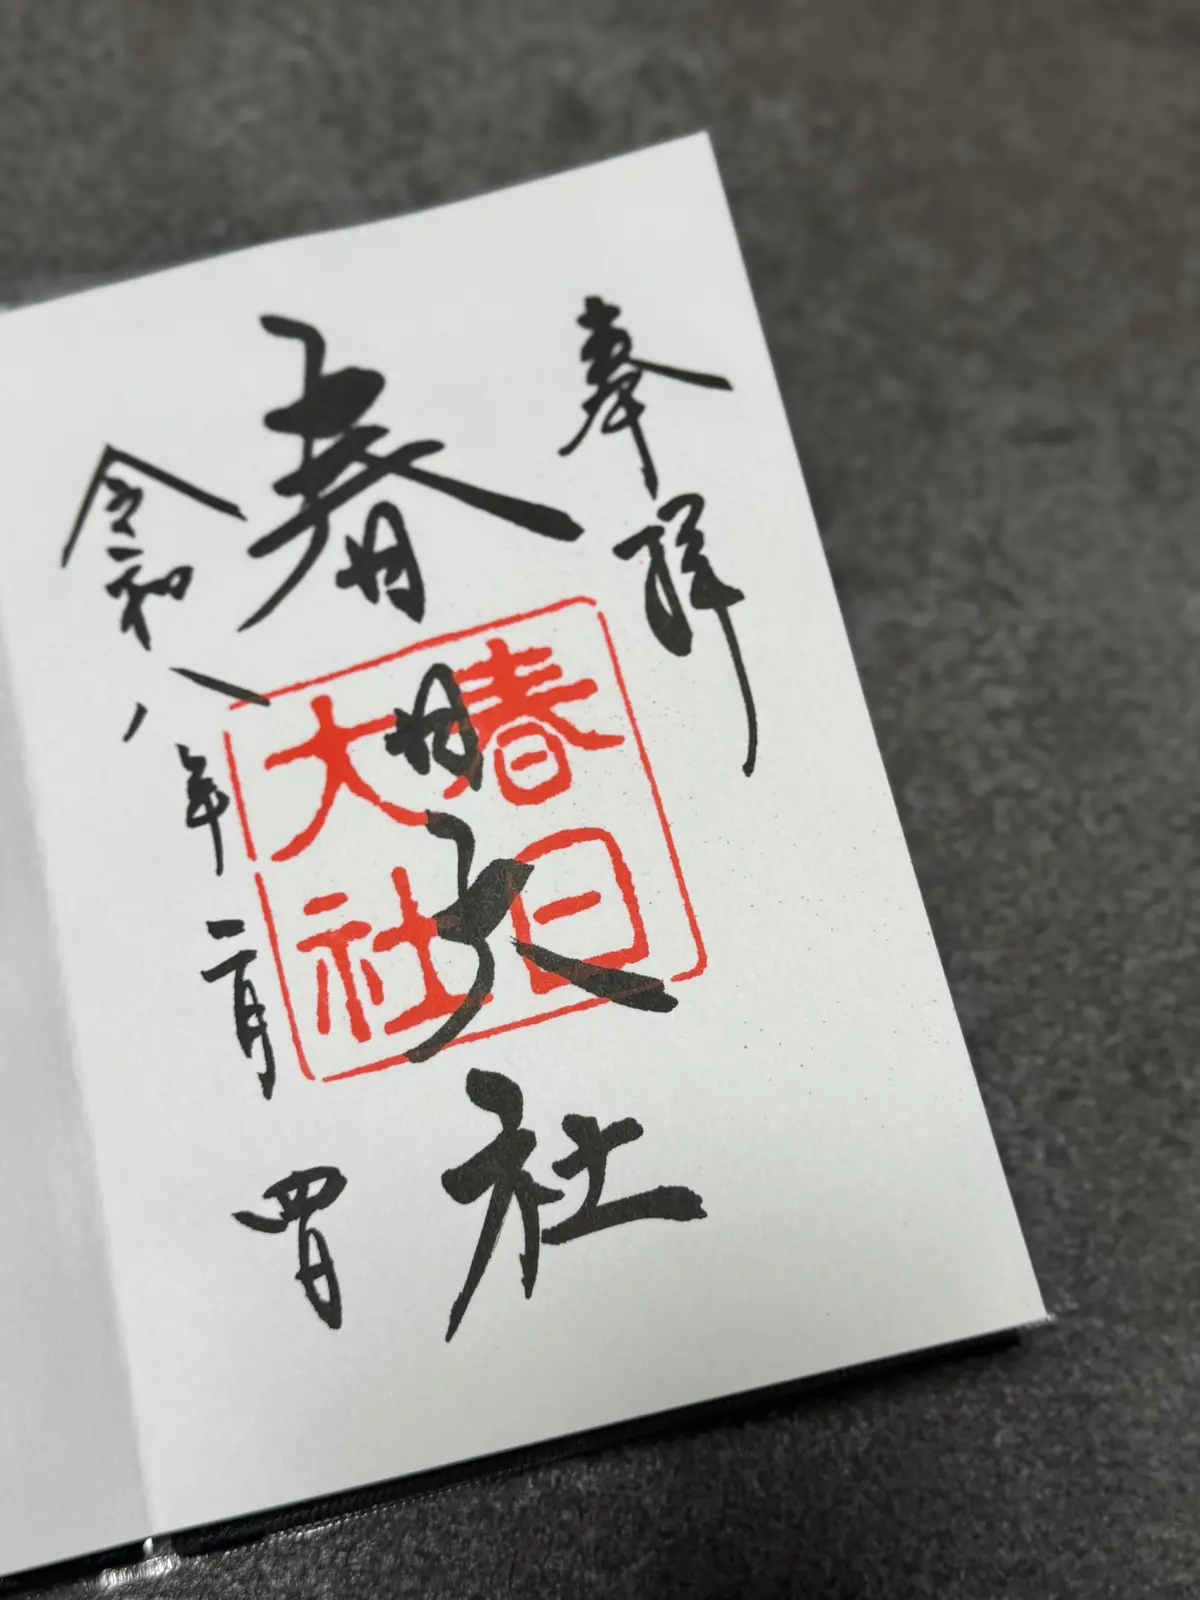 奉拝
春日大社
春日
大社
令和八年二月四日